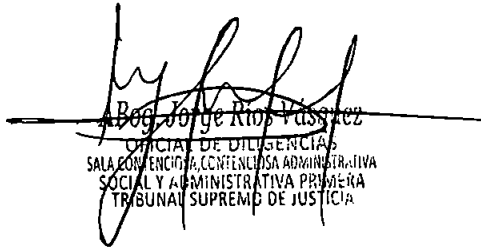 ABog. Jorge Ríos Vásquez
OFICIAL DE DILIGENCIAS
SALA CONTENCIOSA, CONTENCIOSA ADMINISTRATIVA
SOCIAL Y ADMINISTRATIVA PRIMERA
TRIBUNAL SUPREMO DE JUSTICIA